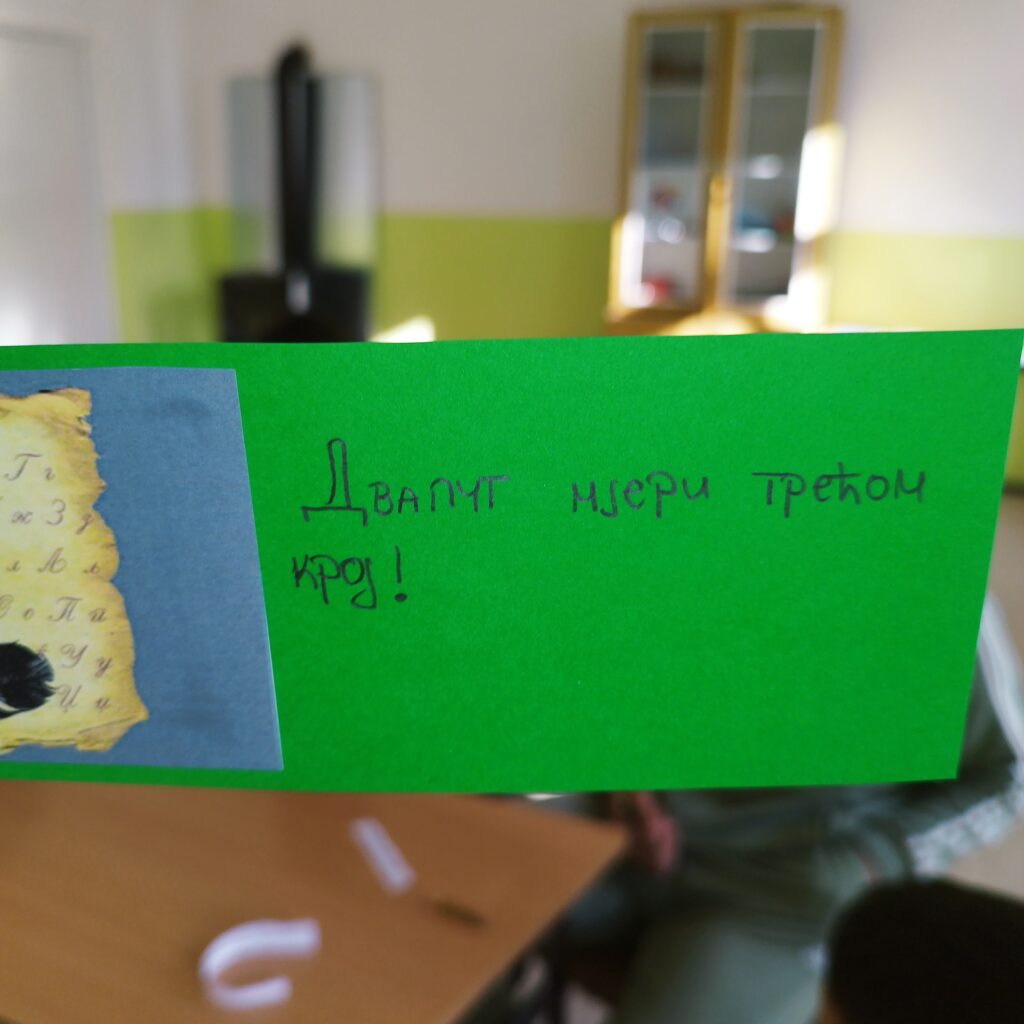 Г г
ж З з
л Љ љ
С о П п
У у
Ц ц
Двапут мјери трећом
крој!